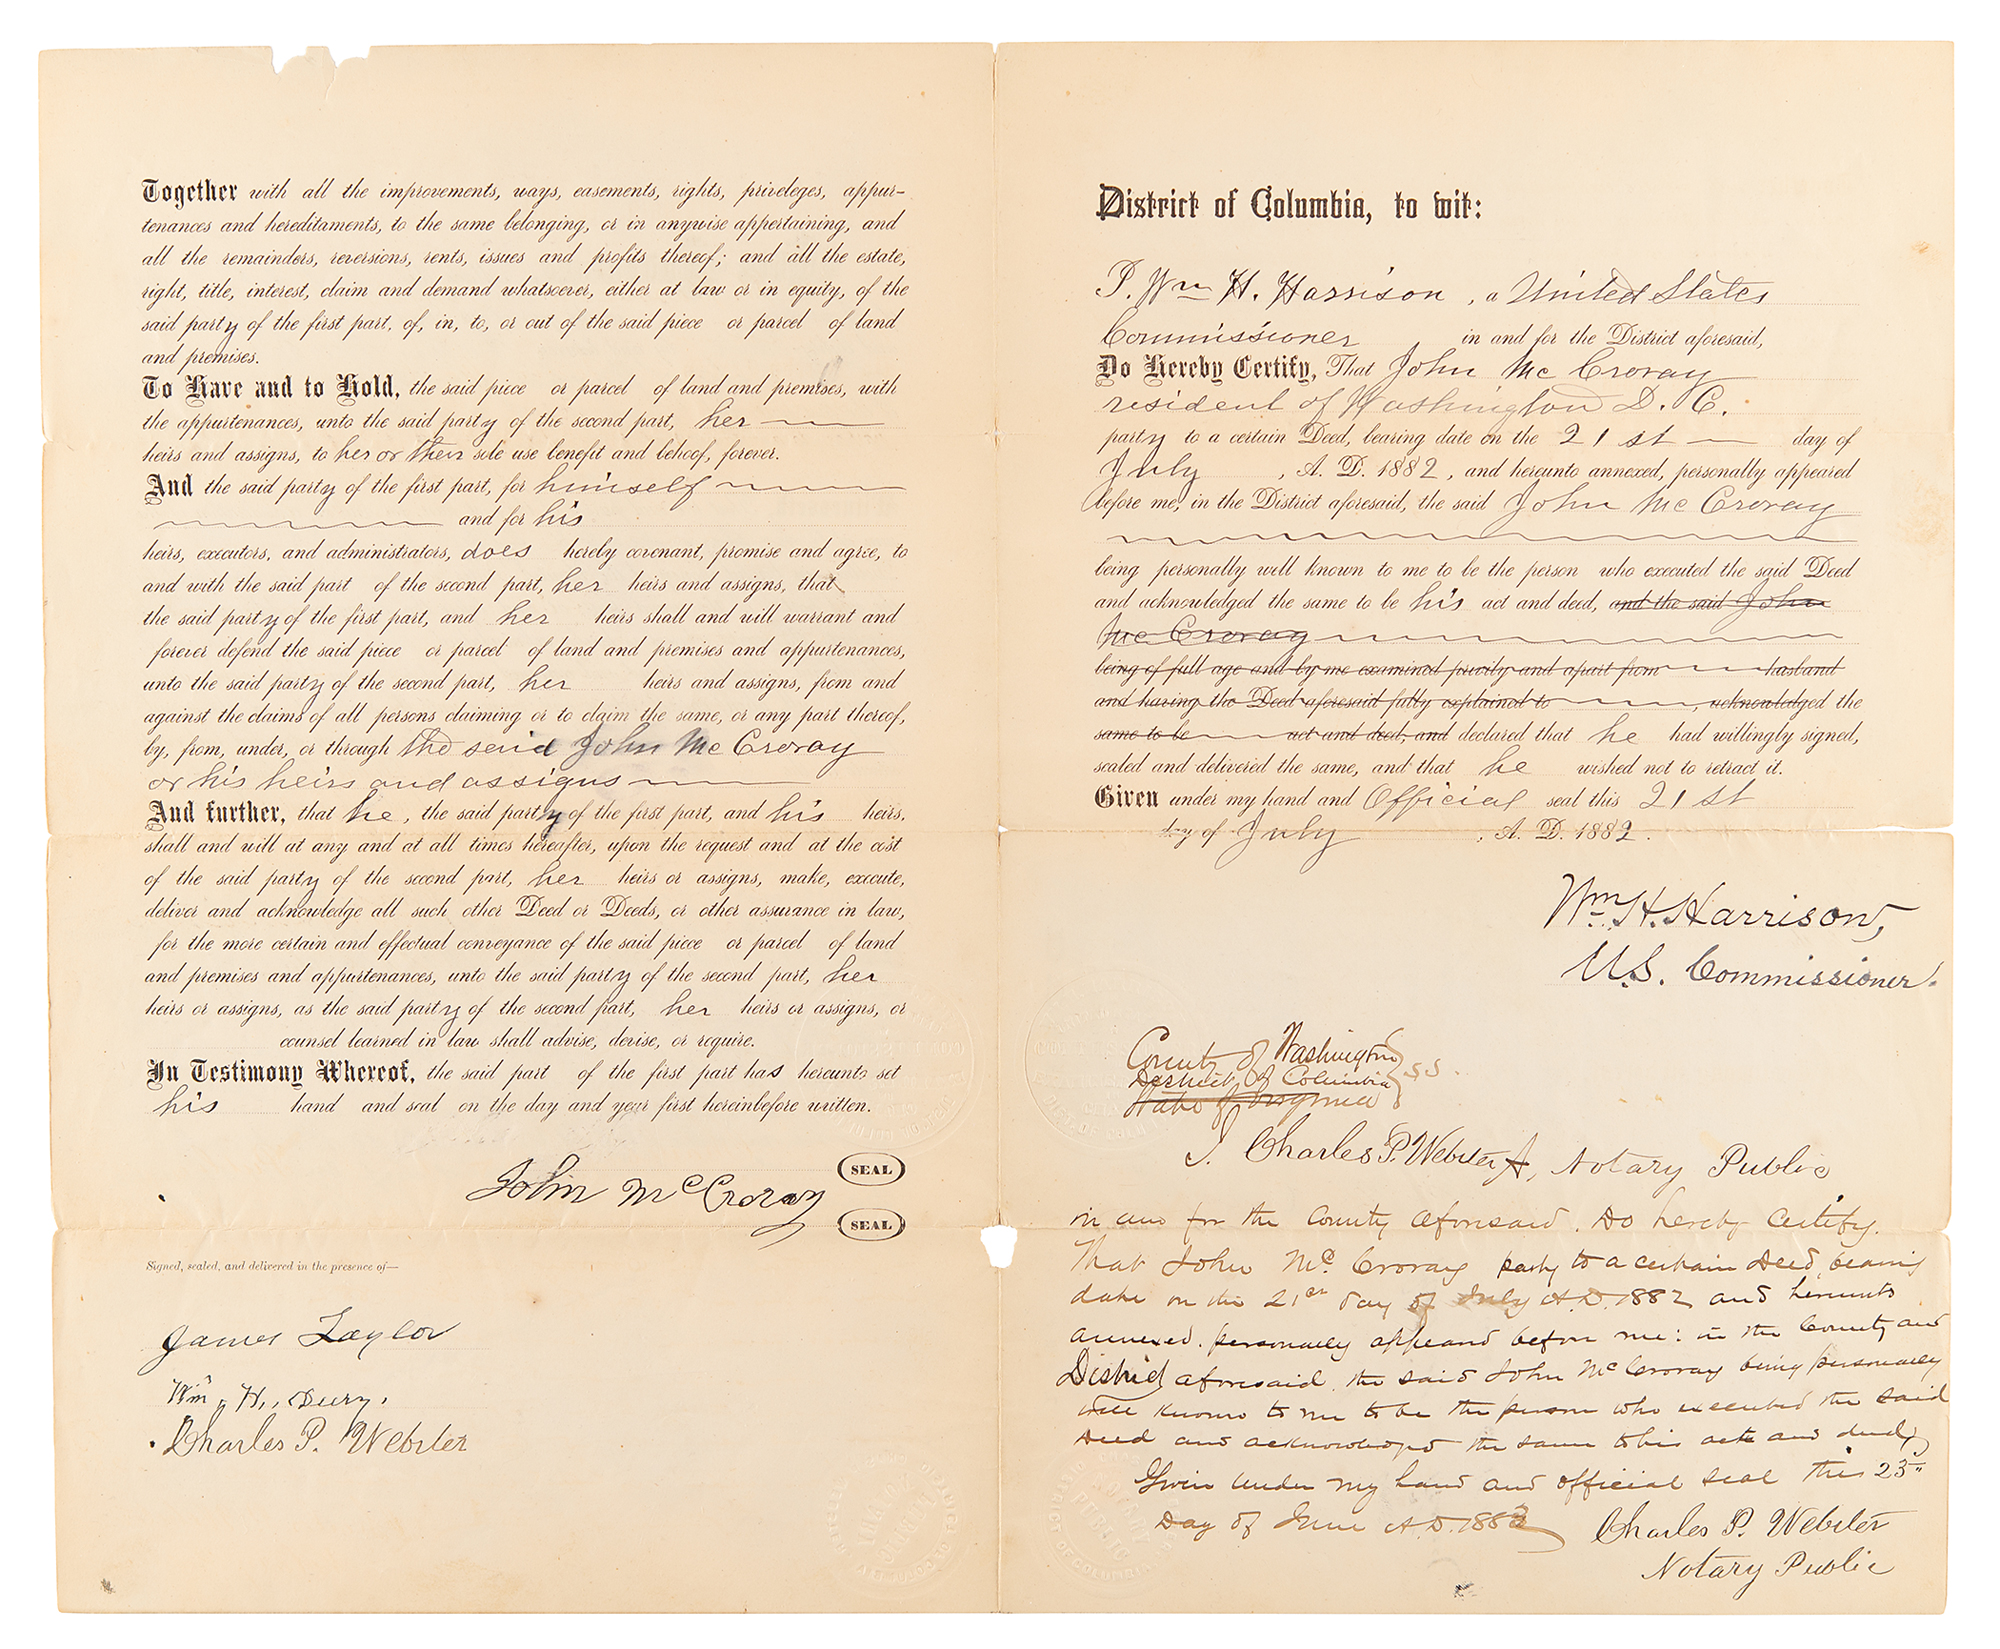 Together with all the improvements, ways, easements, rights, priveleges, appur-
tenances and hereditaments, to the same belonging, or in anywise appertaining, and
all the remainders, reversions, rents, issues and profits thereof; and all the estate,
right, title, interest, claim and demand whatsoever, either at law or in equity, of the
said party of the first part, of, in, to, or out of the said piece or parcel of land
and premises.
To Have and to Hold, the said piece or parcel of land and premises, with
the appurtenances, unto the said party of the second part, her
heirs and assigns, to her or their sole use benefit and behoof, forever.
And the said party of the first part, for himself
and for his
heirs, executors, and administrators, does hereby covenant, promise and agree, to
and with the said part of the second part, her heirs and assigns, that
the said party of the first part, and her heirs shall and will warrant and
forever defend the said piece or parcel of land and premises and appurtenances,
unto the said party of the second part, her heirs and assigns, from and
against the claims of all persons claiming or to claim the same, or any part thereof,
by, from, under, or through the said John McCroray
or his heirs and assigns
And further, that he, the said party of the first part, and his heirs,
shall and will at any and at all times hereafter, upon the request and at the cost
of the said party of the second part, her heirs or assigns, make, execute,
deliver and acknowledge all such other Deed or Deeds, or other assurance in law,
for the more certain and effectual conveyance of the said piece or parcel of land
and premises and appurtenances, unto the said party of the second part, her
heirs or assigns, as the said party of the second part, her heirs or assigns, or
counsel learned in law shall advise, devise, or require.
In Testimony Whereof, the said part of the first part has hereunto set
his hand and seal on the day and year first hereinbefore written.
SEAL
John McCroray
SEAL
Signed, sealed, and delivered in the presence of—
James Taylor
Wm. H. Dury.
Charles P. Webster
District of Columbia, to wit:
I. Wm H. Harrison, a United States
Commissioner in and for the District aforesaid,
Do Hereby Certify, That John McCroray
resident of Washington D. C.
party to a certain Deed, bearing date on the 21st day of
July, A. D. 1882, and hereunto annexed, personally appeared
before me, in the District aforesaid, the said John McCroray
being personally well known to me to be the person who executed the said Deed
and acknowledged the same to be his act and deed, and the said John
McCroray
being of full age and by me examined privily and apart from husband
and having the Deed aforesaid fully explained to, acknowledged the
same to be act and deed, and declared that he had willingly signed,
sealed and delivered the same, and that he wished not to retract it.
Given under my hand and Official seal this 21st
day of July, A. D. 1882.
Wm. H. Harrison,
U.S. Commissioner.
County of Washington
District of Columbia } S.S.
State of Virginia
I. Charles P. Webster, Notary Public
in and for the County aforesaid. Do hereby Certify.
That John McCroray party to a certain Deed, bearing
date on the 21st day of July A.D. 1882 and hereunto
annexed. personally appeared before me: in the County and
District aforesaid. the said John McCroray being personally
well known to me to be the person who executed the said
Deed and acknowledged the same to his act and deed,
Given under my hand and official seal this 23"
Day of June A.D. 1883
Charles P. Webster
Notary Public